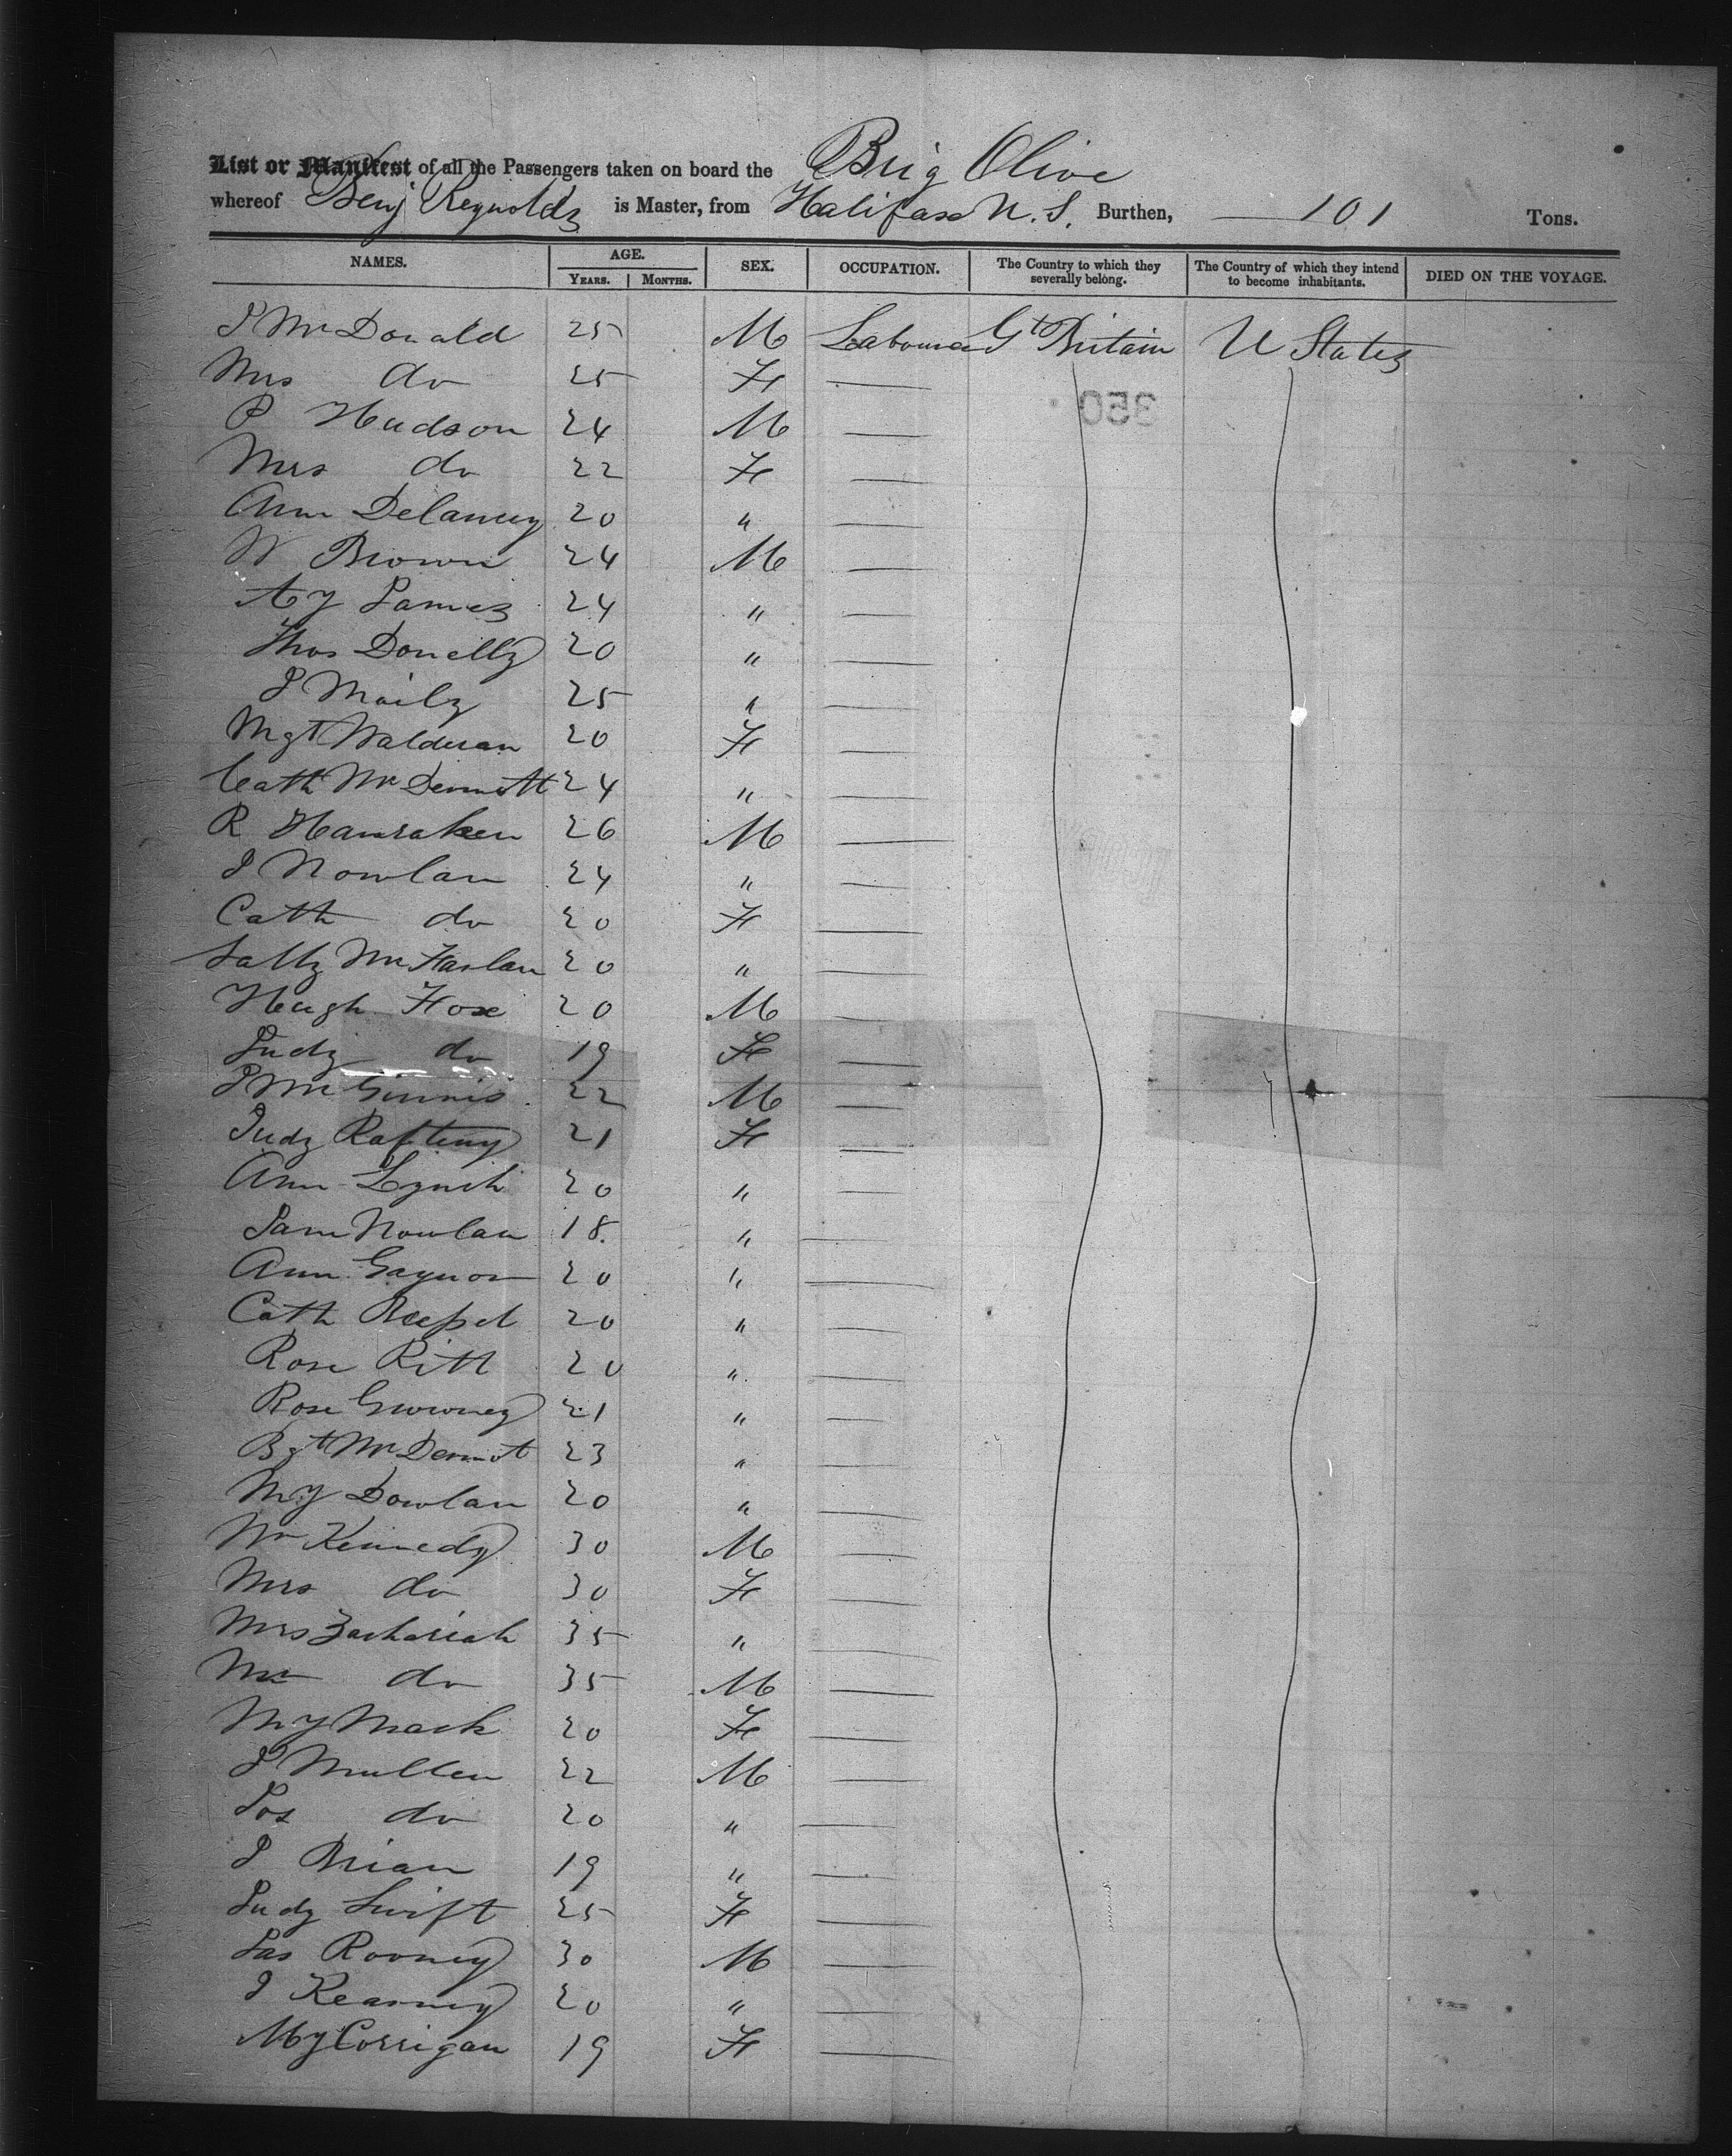 List or Manifest of all the Passengers taken on board the Brig Olive
whereof Benj Reynolds is Master, from Halifax N. S. Burthen, 101 Tons.
NAMES. AGE. SEX. OCCUPATION. The Country to which they severally belong. The Country of which they intend to become inhabitants. DIED ON THE VOYAGE.
YEARS. MONTHS.
J McDonald 25 M Labourer Gt Britain U States
Mrs do 25 F
P Hudson 24 M
350
Mrs do 22 F
Ann Delaney 20 "
W Brown 24 M
James 24 "
Thos Donelly 20 "
J 25 "
Mgt 20 F
Cath McDermott 24 "
R Hanraken 26 M
J Nowlan 24 "
Cath do 20 F
Sally McFarlan 20 "
Hugh Fox 20 M
Judy do 19 F
J McGinnis 22 M
Judy 21 F
Ann Lynch 20 "
Jane Nowlan 18. "
Ann Gaynor 20 "
Cath 20 "
Rose Ritt 20 "
Rose 21 "
Bgt McDermot 23 "
My Dowlan 20 "
Wm Kennedy 30 M
Mrs do 30 F
Mrs Zachariah 35 "
Mr do 35 M
My Mack 20 F
J Mullen 22 M
Jos do 20 "
J Brian 19 "
Judy Swift 25 F
Jas Rooney 30 M
J Kearney 20 "
My Corrigan 19 F